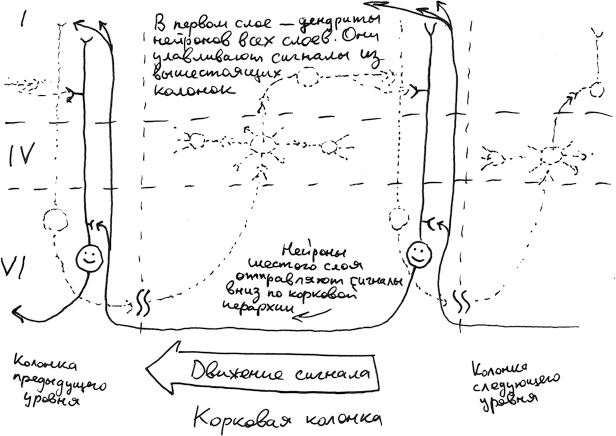 I
В первом слое — дендриты
нейронов всех слоев. Они
улавливают сигналы из
вышестоящих
колонок
IV
VI
Нейроны
шестого слоя
отправляют сигналы
вниз по корковой
иерархии
Колонка
предыдущего
уровня
Движение сигнала
Колонка
следующего
уровня
Корковая колонка